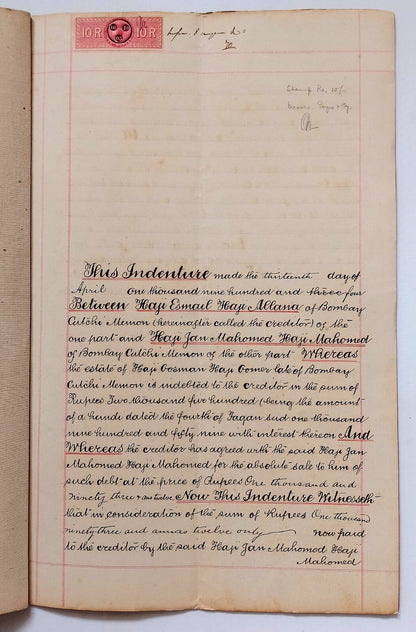 10 R 10 R
Stamp Rs. 10/-
This Indenture made the thirteenth day of
April one thousand nine hundred and three four
Between Haji Esmail Haji Allana of Bombay
Cutchi Memon (hereinafter called the creditor) of the
one part and Haji Jan Mahomed Haji Mahomed
of Bombay Cutchi Memon of the other part Whereas
the estate of Haji Oosman Haji Gomer late of Bombay
Cutchi Memon is indebted to the creditor in the sum of
Rupees Two thousand five hundred (being the amount
of a hundi dated the fourth of Fagan sud one thousand
nine hundred and fifty nine with interest thereon And
Whereas the creditor has agreed with the said Haji Jan
Mahomed Haji Mahomed for the absolute sale to him of
such debt at the price of Rupees One thousand and
ninety three and twelve Now This Indenture Witnesseth
that in consideration of the sum of Rupees One thousand
ninety three and annas twelve only now paid
to the creditor by the said Haji Jan Mahomed Haji
Mahomed